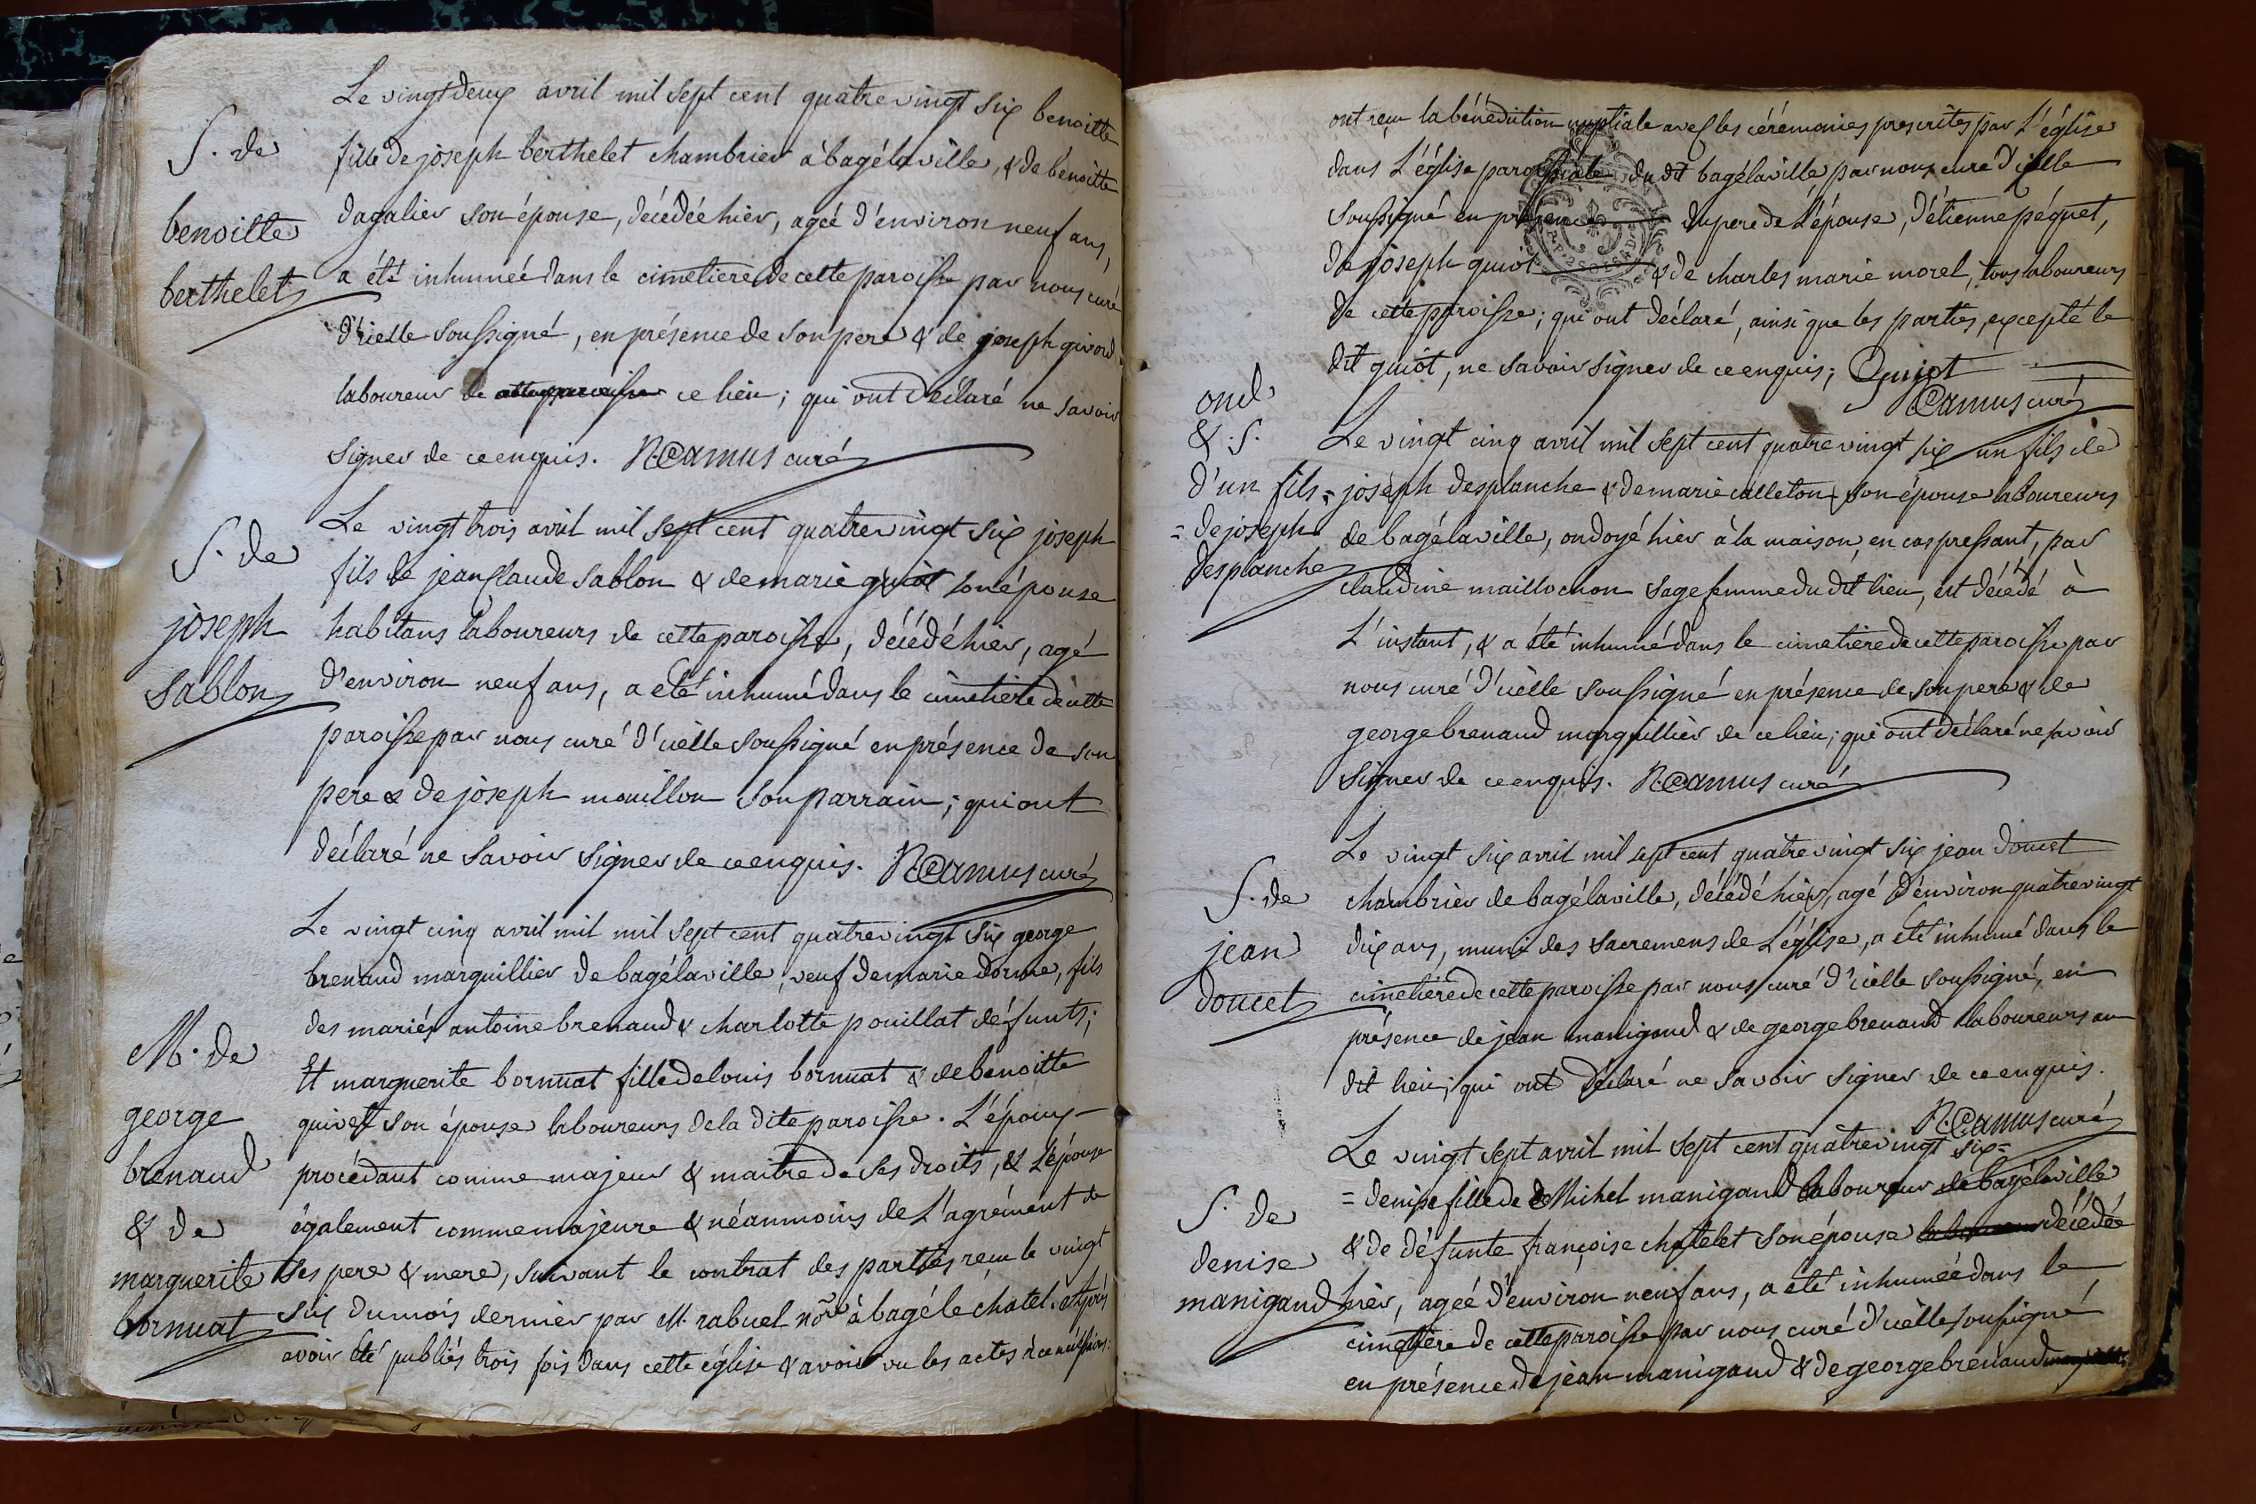 Le vingt deux avril mil sept cent quatre vingt six benoitte
S. de
fille de joseph berthelet chambrier à bagélaville, & de bénoitte
benoitte
dagalier son épouse, décédée hier, agée d'environ neuf ans,
berthelet
a été inhumeé dans le cimetiere de cette paroisse par nous curé
d'icelle soussigné, en présence de son pere & de joseph givord
laboureur de ce lieu; qui ont déclaré ne savoir
signer de ce enquis. R. Camus curé
Le vingt trois avril mil sept cent quatre vingt six joseph
S. de
fils de jean claude sablon & de marie quiot son épouse
joseph
habitans laboureurs de cette paroisse, décédé hier, agé
sablon
d'environ neuf ans, a eté inhumé dans le cimetiere de cette
paroisse par nous curé d'icelle soussigné en présence de son
pere & de joseph mouillon son parrain; qui ont
déclaré ne savoir signer de ce enquis. R. Camus curé
Le vingt cinq avril mil mil sept cent quatre vingt six george
brenaud marguillier de bagélaville, veuf de marie dorme, fils
des mariés antoine brenaud & charlotte pouillat défunts;
M. de
Et marguerite bornuat fille de louis bornuat & de benoitte
george
quivet son épouse laboureurs de la dite paroisse. L'époux
brenaud
procédant comme majeur & maitre de ses droits, & L'épouse
& de
également comme majeure & néanmoins de L'agrément de
marguerite
ses pere & mere, suivant le contrat des parties reçu le vingt
bornuat
six du mois dernier par M. rabuel nore à bagé le chatel. Après
avoir été publiés trois fois dans cette église & avoir vu les actes à ce nécessaires.
ont reçu la bénédiction nuptiale avec les cérémonies prescrites par L'église
dans L'église paroissiale du dit bagélaville par nous curé d'icelle
soussigné en présence du pere de L'épouse, d'étienne péquet,
de joseph quiot & de charles marie morel, tous laboureurs
de cette paroisse; qui ont déclaré, ainsi que les parties, excepté le
dit quiot, ne savoir signer de ce enquis; Quiot
Camus curé
ond.
& S.
Le vingt cinq avril mil sept cent quatre vingt six un fils de
d'un fils =
joseph desplanche & de marie calleton son épouse laboureurs
= de joseph
de bagélaville, ondoyé hier à la maison, en cas pressant, par
desplanche
claudine maillochon sage femme du dit lieu, est décédé à
L'instant, & a été inhumé dans le cimetiere de cette paroisse par
nous curé d'icelle soussigné en présence de son pere & de
george brenaud marguillier de ce lieu; qui ont déclaré ne savoir
signer de ce enquis. R. Camus curé
Le vingt six avril mil sept cent quatre vingt six jean doucet
S. de
chambrier de bagélaville, décédé hier, agé d'environ quatre vingt
jean
dix ans, muni des sacremens de L'église, a été inhumé dans le
doucet
cimetiere de cette paroisse par nous curé d'icelle soussigné, en
présence de jean manigand & de george brenaud laboureurs au
dit lieu; qui ont déclaré ne savoir signer de ce enquis.
R. Camus curé
Le vingt sept avril mil sept cent quatre vingt six =
S. de
= denise fille de Michel manigand laboureur de bagélaville
denise
& de défunte françoise chatelet son épouse décédée
manigand
hier, agée d'environ neuf ans, a été inhumeé dans le
cimetiere de cette paroisse par nous curé d'icelle soussigné
en présence de jean manigand & de george brenaud